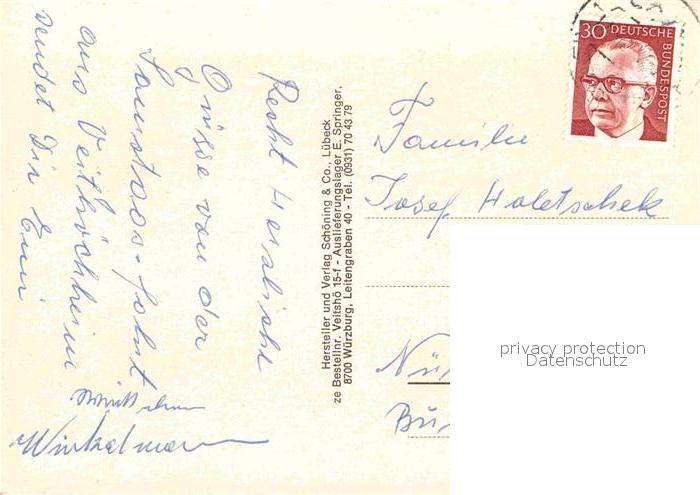 Recht Herzliche
Grüsse von der
Samstags-Fahrt
aus Veitshöchheim
sendet Dir Emi
Winkelmann
Hersteller und Verlag Schöning & Co., Lübeck
ze Bestellnr. Veitshö 15-f - Auslieferungslager E. Springer,
8700 Würzburg, Leitengraben 40 - Tel. (0931) 70 43 79
30 DEUTSCHE
BUNDESPOST
Familie
Josef Holetschek
Nür
privacy protection
Datenschutz